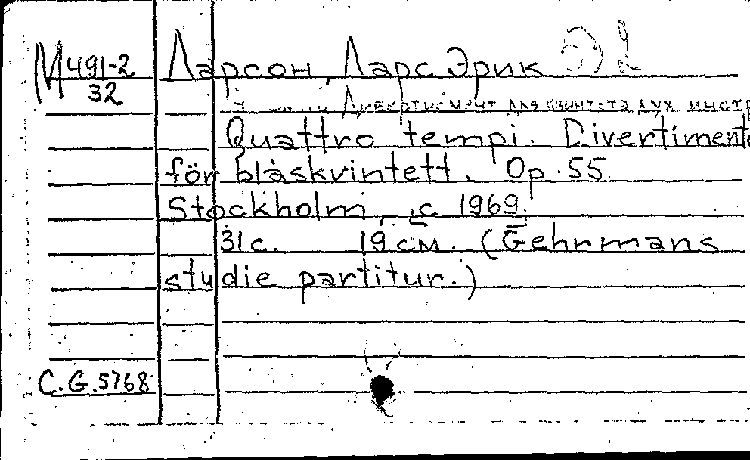 М 491-2
32
Ларсон, Ларс Эрик
Дивертисмент для квинтета дух. инстр
Quattro tempi. Divertimento
för blåskvintett. Op. 55.
Stockholm, c. 1969.
31 с. 19 см. (Gehrmans
studie partitur.)
C.G.5768